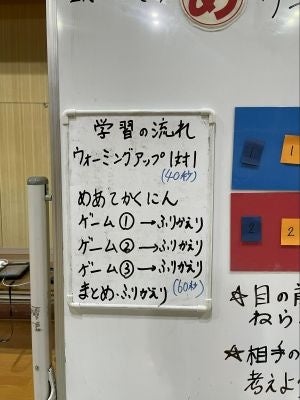 め
学習の流れ
ウォーミングアップ 1対1
(40秒)
めあてかくにん
ゲーム①→ふりかえり
ゲーム②→ふりかえり
ゲーム③→ふりかえり
まとめ・ふりかえり (60秒)
1
2
2
☆目の前
ねら
☆相手の
考えよ